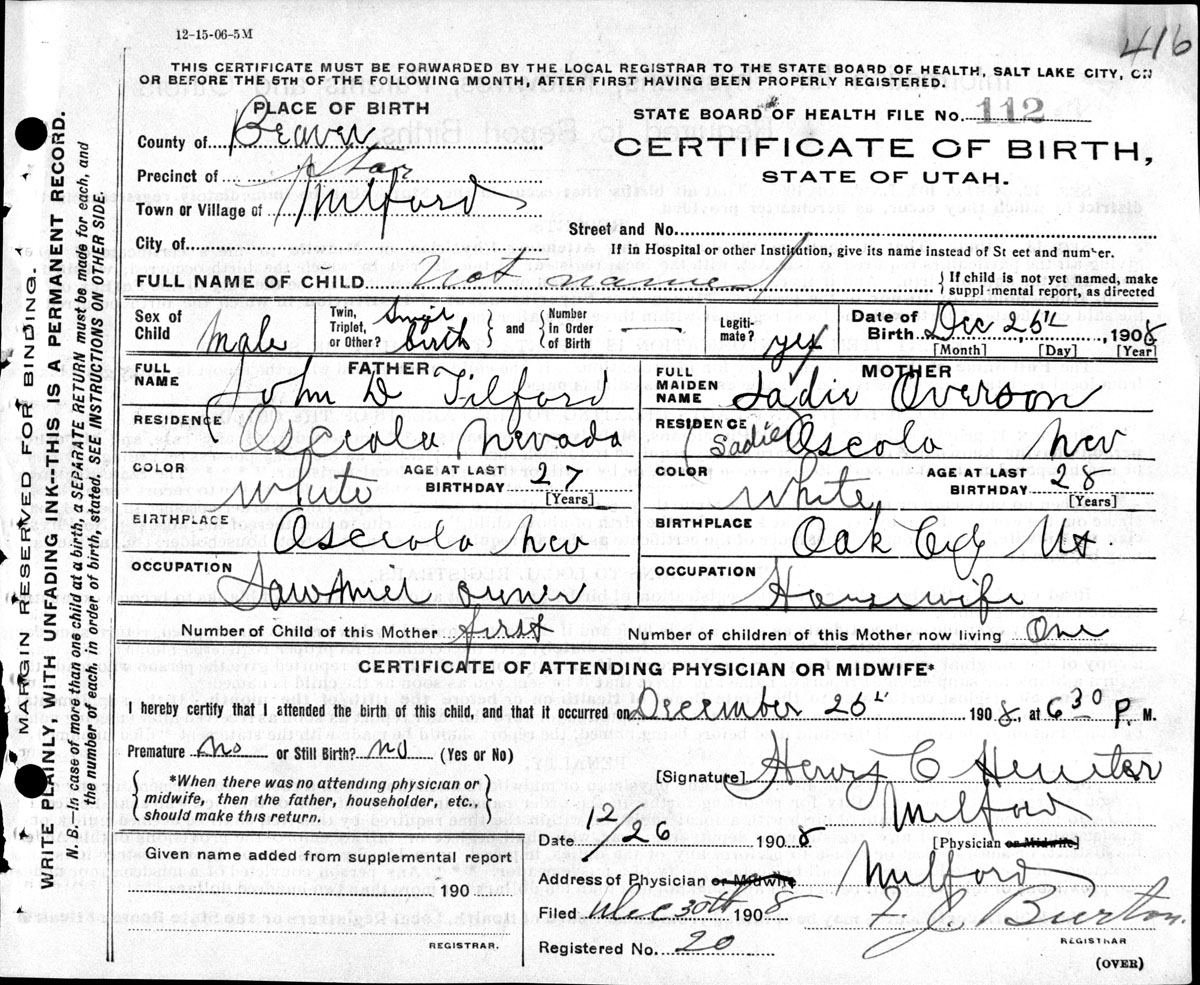 12-15-06-5M
416
THIS CERTIFICATE MUST BE FORWARDED BY THE LOCAL REGISTRAR TO THE STATE BOARD OF HEALTH, SALT LAKE CITY, ON
OR BEFORE THE 5TH OF THE FOLLOWING MONTH, AFTER FIRST HAVING BEEN PROPERLY REGISTERED.
PLACE OF BIRTH
County of Beaver
Precinct of Star
Town or Village of Milford
City of
STATE BOARD OF HEALTH FILE No. 112
CERTIFICATE OF BIRTH,
STATE OF UTAH.
Street and No.
If in Hospital or other Institution, give its name instead of St eet and number.
FULL NAME OF CHILD Not named { If child is not yet named, make suppl·mental report, as directed
Sex of Child Male
Twin, Triplet, or Other? Singel birth } and { Number in Order of Birth
Legiti-mate? yes
Date of Birth Dec 26th, 1908
[Month] [Day] [Year]
FATHER
FULL NAME John D Tilford
RESIDENCE Osceola Nevada
COLOR White AGE AT LAST BIRTHDAY 27
[Years]
BIRTHPLACE Osceola Nev
OCCUPATION Sawmill owner
MOTHER
FULL MAIDEN NAME Sadie Overson
RESIDENCE (Sadie) Osceola Nev
COLOR White AGE AT LAST BIRTHDAY 28
[Years]
BIRTHPLACE Oak City Ut
OCCUPATION Housewife
Number of Child of this Mother first Number of children of this Mother now living One
CERTIFICATE OF ATTENDING PHYSICIAN OR MIDWIFE*
I hereby certify that I attended the birth of this child, and that it occurred on December 26th 1908, at 6 30 P. M.
Premature no or Still Birth? no (Yes or No)
*When there was no attending physician or
midwife, then the father, householder, etc.,
should make this return.
Given name added from supplemental report
190
REGISTRAR.
[Signature] Henry C Hunter
Milford
[Physician or Midwife]
Date 12/26 1908
Address of Physician or Midwife Milford
Filed Dec 30th 1908 F. J. Burton.
REGISTRAR
Registered No. 20
(OVER)
MARGIN RESERVED FOR BINDING.
WRITE PLAINLY, WITH UNFADING INK--THIS IS A PERMANENT RECORD.
N. B. In case of more than one child at a birth, a SEPARATE RETURN must be made for each, and
the number of each, in order of birth, stated. SEE INSTRUCTIONS ON OTHER SIDE.